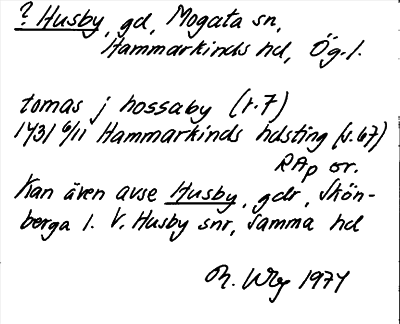 ? Husby, gd, Mogata sn,
Hammarkinds hd, Ög.l.
tomas j hossaby (r.7)
1431 6/11 Hammarkinds hdsting (s.67)
RAp or.
Kan även avse Husby, gdr, Skön-
berga l. V. Husby snr, samma hd
1974